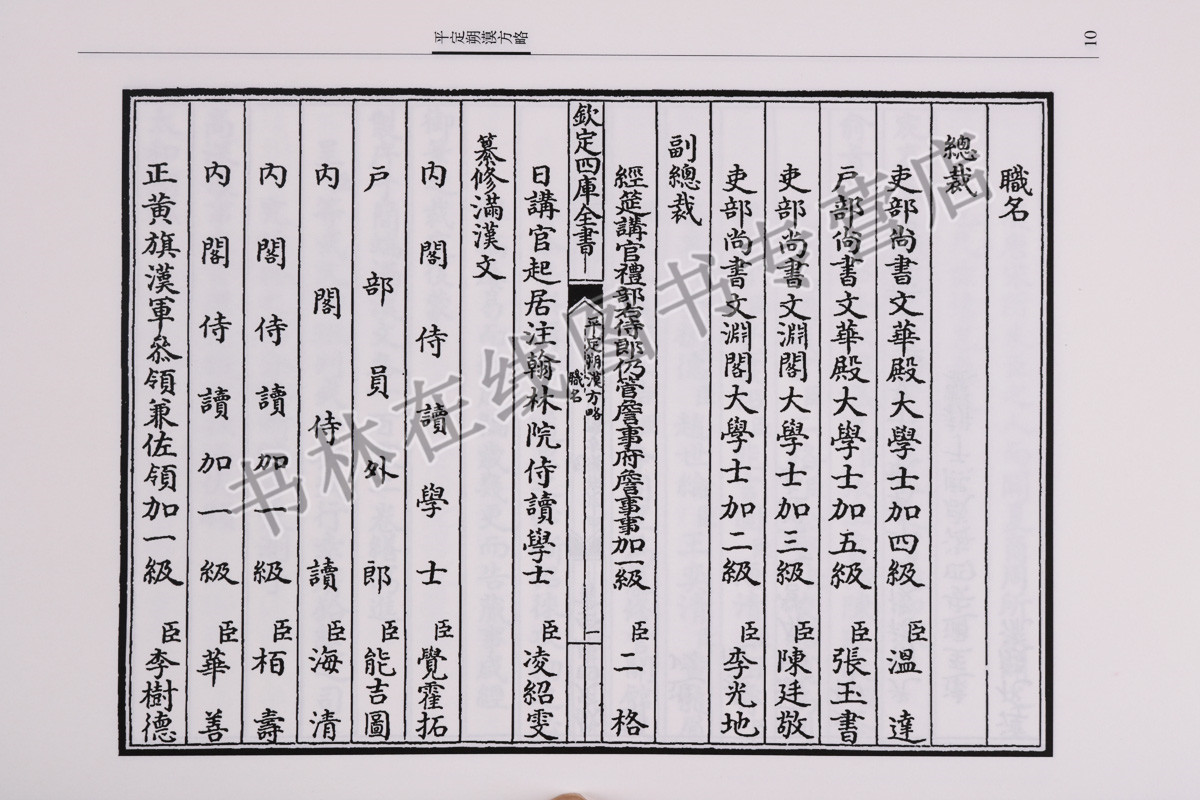 平定朔漠方略
10
職名
總裁
吏部尚書文華殿大學士加四級 臣溫達
戶部尚書文華殿大學士加五級 臣張玉書
吏部尚書文淵閣大學士加三級 臣陳廷敬
吏部尚書文淵閣大學士加二級 臣李光地
副總裁
經筵講官禮部右侍郎仍管詹事府詹事事加一級 臣二格
欽定四庫全書
平定朔漠方略
職名
一
日講官起居注翰林院侍讀學士 臣凌紹雯
纂修滿漢文
內閣侍讀學士 臣覺霍拓
戶部員外郎 臣能吉圖
內閣侍讀 臣海清
內閣侍讀加一級 臣栢壽
內閣侍讀加一級 臣華善
正黃旗漢軍叅領兼佐領加一級 臣李樹德
书林在线图书专营店